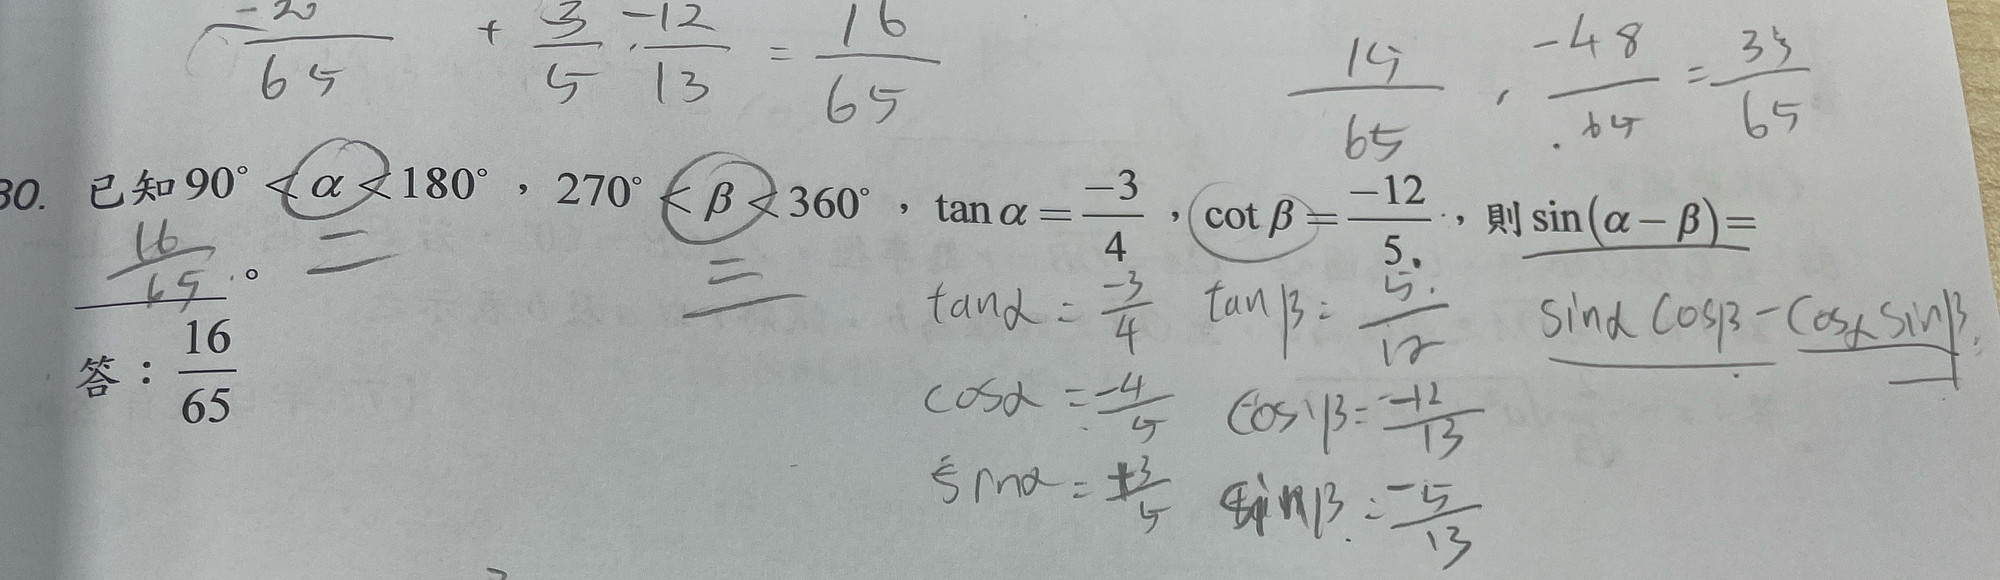 -20/65 + 3/5 · -12/13 = 16/65
15/65 , -48/65 = 33/65
30. 已知90°<α<180°，270°<β<360°，tan α = -3/4，cot β = -12/5，則 sin(α-β)=
16/65 。
二 三
tanα = -3/4 tanβ = 5/12 sinα cosβ - cosα sinβ
答：16/65
cosα = -4/5 cosβ = -12/13
sinα = +3/5 sinβ = -5/13